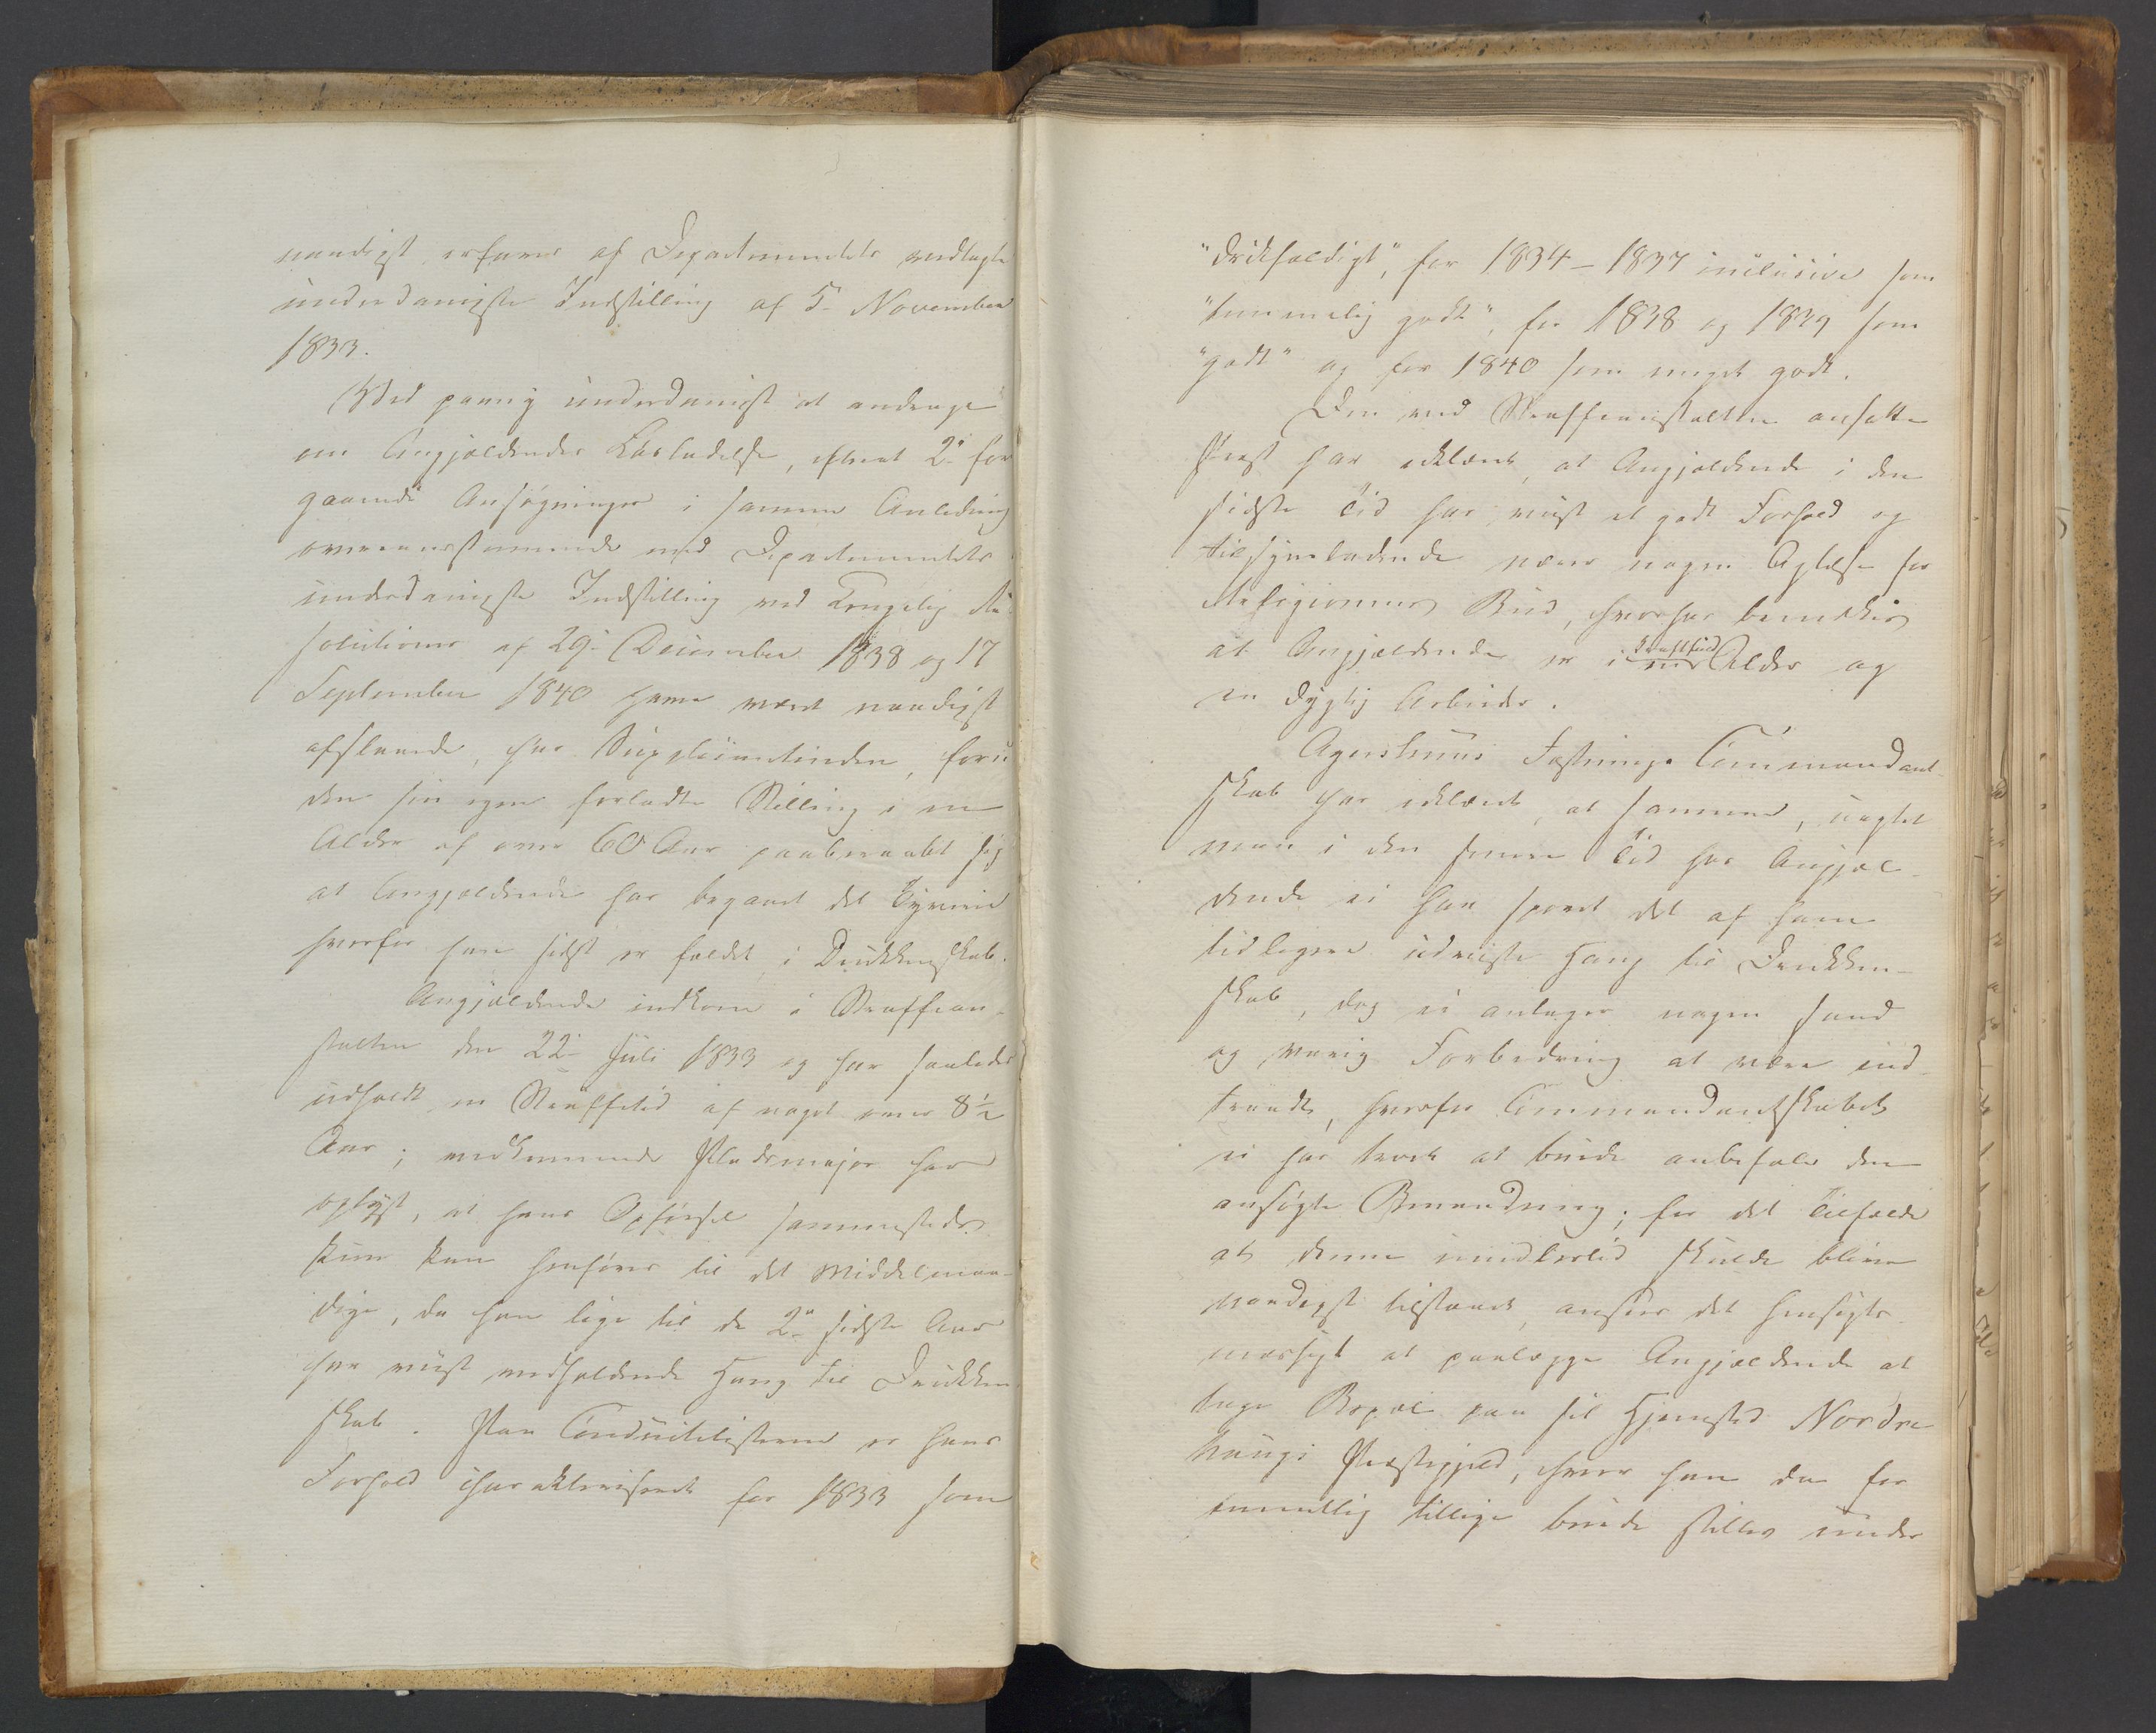 naadigst erfares af Departementets vedlagte
underdanigste Indstilling af 5. November
1833.
Ved paany underdanigst at andrage
om Angjældendes Løsladelse, efterat 2de fore
gaaende Ansøgninger i samme Anledning
overeensstemmende med Departementets
underdanigste Indstilling ved Kongelig Re-
solutioner af 29. December 1838 og 17
September 1840 have været naadigst
afslaaede, har Supplicantinden, foru
den sin egen forladte Stilling i en
Alder af over 60 Aar paaberaabt sig
at Angjældende har begaaet det Tyverie
hvorfor han sidst er fældet, i Drukkenskab.
Angjældende indkom i Straffean-
stalten den 22. Juli 1833 og har saaledes
udholdt en Straffetid af noget over 8½
Aar; vedkommende Pladsmajor har
oplyst, at hans Opførsel sammesteds
kun kan henføres til det Middelmaa-
dige, da han lige til de 2de sidste Aar
har viist vedholdende Hang til Drukken
skab. Paa Conduitelisterne er hans
Forhold charakteriseret for 1833 som
"drikfældigt", for 1834-1837 inclusive som
"temmelig godt", for 1838 og 1839 som
"godt" og for 1840 som meget godt.
Den ved Straffeanstalten ansatte
Præst har erklæret, at Angjældende i den
sidste Tid har viist et godt Forhold og
tilsyneladende nærer nogen Agtelse for
Religionens Bud, hvorhos bemærkes
at Angjældende er i kraftfuld Alder og
en dygtig Arbeider.
Agershuus Fæstnings Commandant-
skab har erklæret, at samme, uagtet
man i den senere Tid hos Angjæl-
dende ei har sporet det af ham
tidligere udviiste Hang til Drukken-
skab, dog ei antager nogen sand
og varig Forbedring at være ind-
traadt, hvorfor Commandantskabet
ei har troet at burde anbefale den
ansøgte Benaadning; for det Tilfælde
at denne imidlertid skulde blive
naadigst tilstaaet, ansees det hensigts-
mæssigt at paalægge Angjældende at
tage Bopæl paa sit Hjemsted Nordre
Houge Præstegjeld, hvor han da for
mentlig tillige burde stilles under